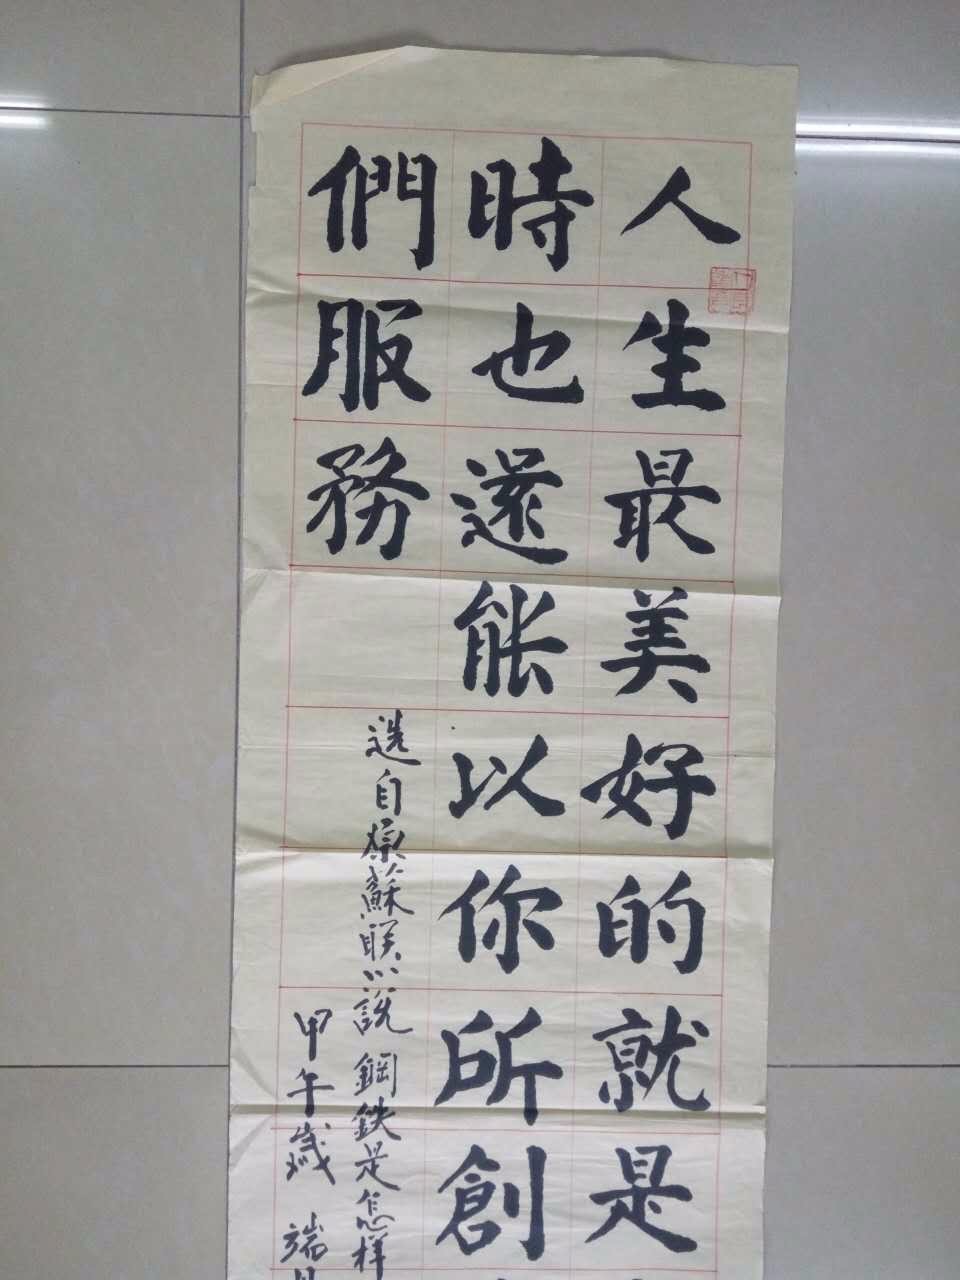 人生最美好的就是
時也還能以你所創
們服務
选自原蘇联小説 鋼鉄是怎样
甲午歲 端月